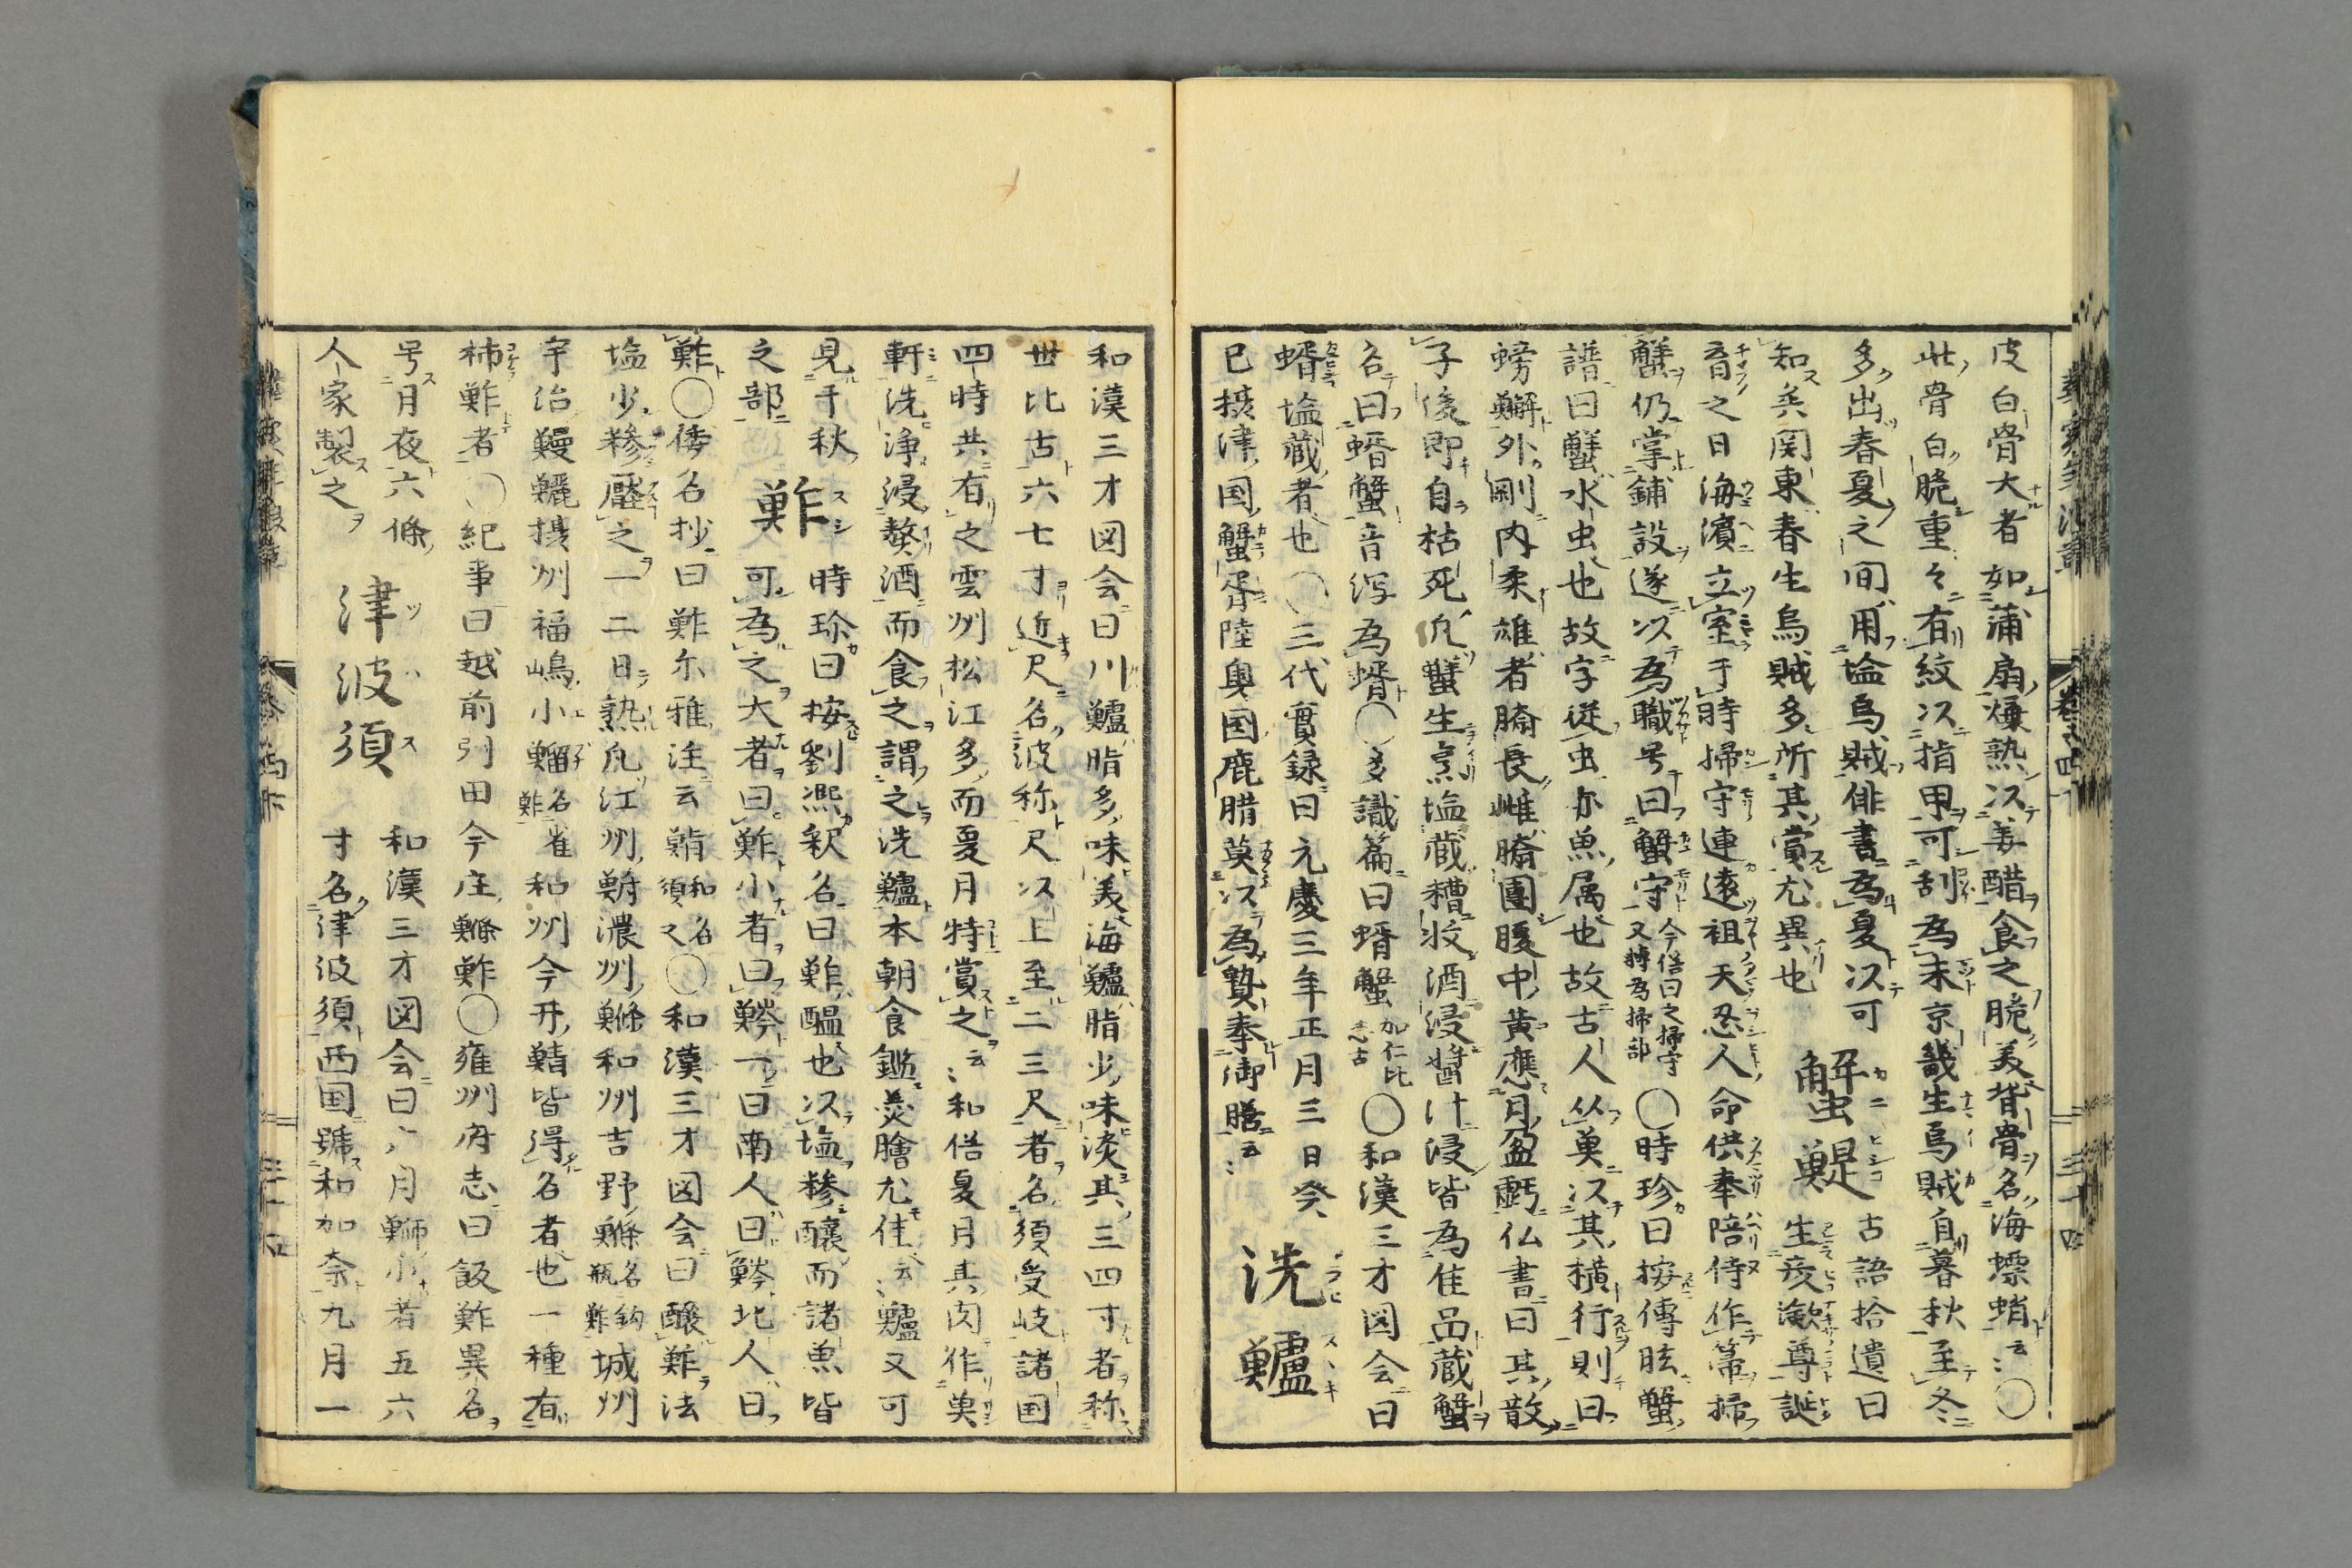 皮白骨大者如蒲扇煉熟以姜醋食之脆美背骨名海螵蛸云〻〇
此骨白脆重々有紋以指甲可刮為末京畿生烏賊自暮秋至冬
多出春夏之间用塩烏賊俳書為夏以可
蟹鯷
古語拾遺曰
知矣関東春生烏賊多所其賞尤異也
生彦瀲尊誕
育之日海濱立室于時掃守連遠祖天忍人命供奉陪侍作箒掃
蟹仍掌鋪設遂以為職号曰蟹守
今俗曰之掃守
又轉為掃部
〇時珍曰按傳肱蟹
譜曰蟹水虫也故字從虫亦魚属也故古人以其横行則曰
螃蠏外剛内柔雄者臍長雌臍團腹中黄應月盈虧仏書曰其散
子後即自枯死凢蟹生烹塩蔵糟收酒浸醤汁浸皆為佳品蔵蟹
名曰蝑蟹音瀉為蝑〇多識篇曰蝑蟹
加仁比
志古
〇和漢三才図会曰
蝑塩蔵者也〇三代實録曰元慶三年正月三日癸
巳摂津国蟹胥陸奥国鹿腊莫以為贄奉御膳云〻
洗鱸
和漢三才図会曰川鱸脂多味美海鱸脂少味淡其三四寸者称
世比古六七寸近尺名波称尺以上至二三尺者名須受岐諸国
四時共有之雲州松江多而夏月特賞之云〻和俗夏月其肉作
軒洗浄浸熬酒而食之謂之洗鱸本朝食鑑羹膾尤佳云〻鱸又可
見于秋
之部
鮓
時珍曰按劉熈釈名曰鮓醞也以塩糝醸而諸魚皆
可為之大者曰鮓小者曰䰼一曰南人曰䰼北人曰
鮓〇倭名抄曰鮓尓雅注云鮨
和名
須之
〇和漢三才図会曰醸鮓法
塩少糝壓之一二日熟凢江州鮒濃州鰷和州吉野鰷
名釣
瓶鮓
城州
宇治鰻鱺摂州福嶋小鰡
名雀
鮓
和州今井鯖皆得名者也一種有
柿鮓者〇紀事曰越前引田今庄鰷鮓〇雍州府志曰飯鮓異名
号月夜六條
人家製之
津波須
和漢三才図会曰六月鰤小者五六
寸名津波須西国號和加奈九月一